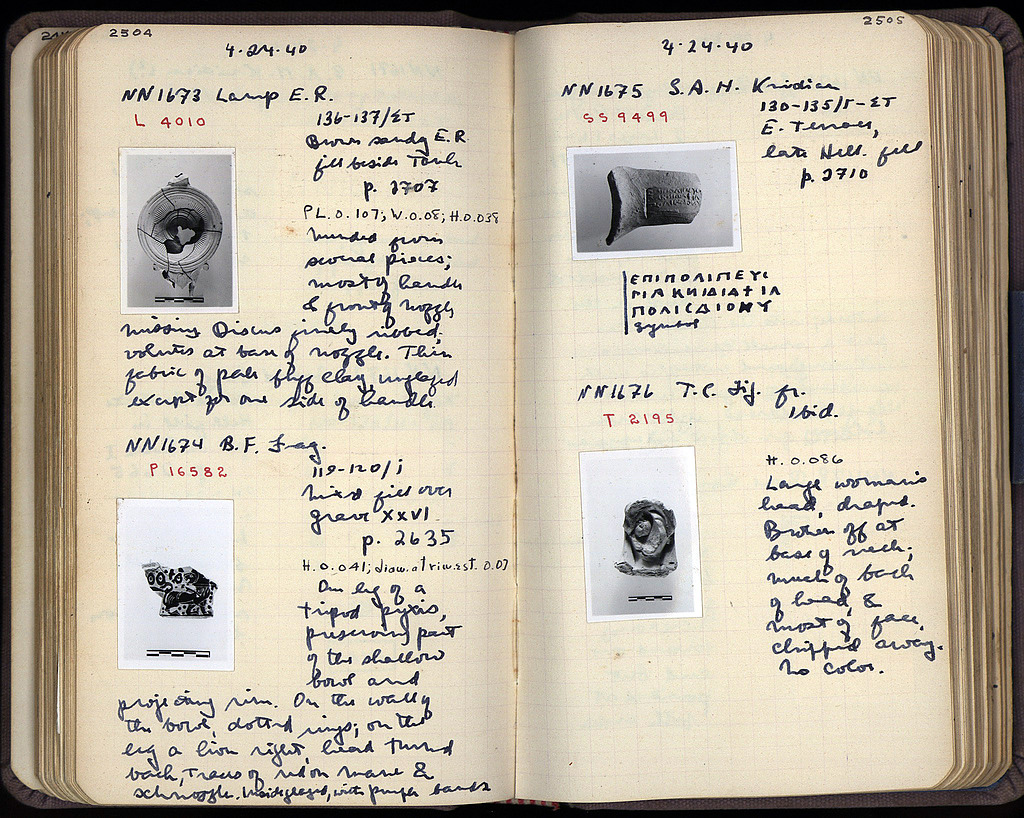 2504
4·24·40
NN1673 Lamp E.R.
L 4010
136-137/ΣΤ
Brown sandy E.R.
fill beside Tomb
p. 2707
P L. 0.107; W. 0.08; H. 0.038
Mended from
several pieces;
most of handle
& front of nozzle
missing Discus finely ribbed;
volutes at base of nozzle. Thin
fabric of pale buff clay, unglazed
except for one side of handle.
NN1674 B.F. Frag.
P 16582
119-120/i
Mixed fill over
grave XXVI
p. 2635
H. 0.041; diam. at rim est. 0.07
One leg of a
tripod pyxis,
preserving part
of the shallow
bowl and
projecting rim. On the wall of
the bowl, dotted rings; on the
leg a lion right, head turned
back, Traces of red on mane &
schnozzle. Inside glazed, with purple bands
2505
4-24-40
NN1675 S.A.H. Knidian
SS 9499
130-135/Γ-ΣΤ
E. Terrace,
late Hell. fill
p. 2710
ΕΠΙΠΟΛΙΠΕΥΙ
ΓΙΑ ΚΝΙΔΙΑ+ΙΛ
ΠΟΛΙΣΔΙΟΝΥ
symbol
NN1676 T.C. Fig. fr.
T 2195
Ibid.
H. 0.086
Large woman's
head, draped.
Broken off at
base of neck;
much of back
of head, &
most of face,
chipped away.
No color.